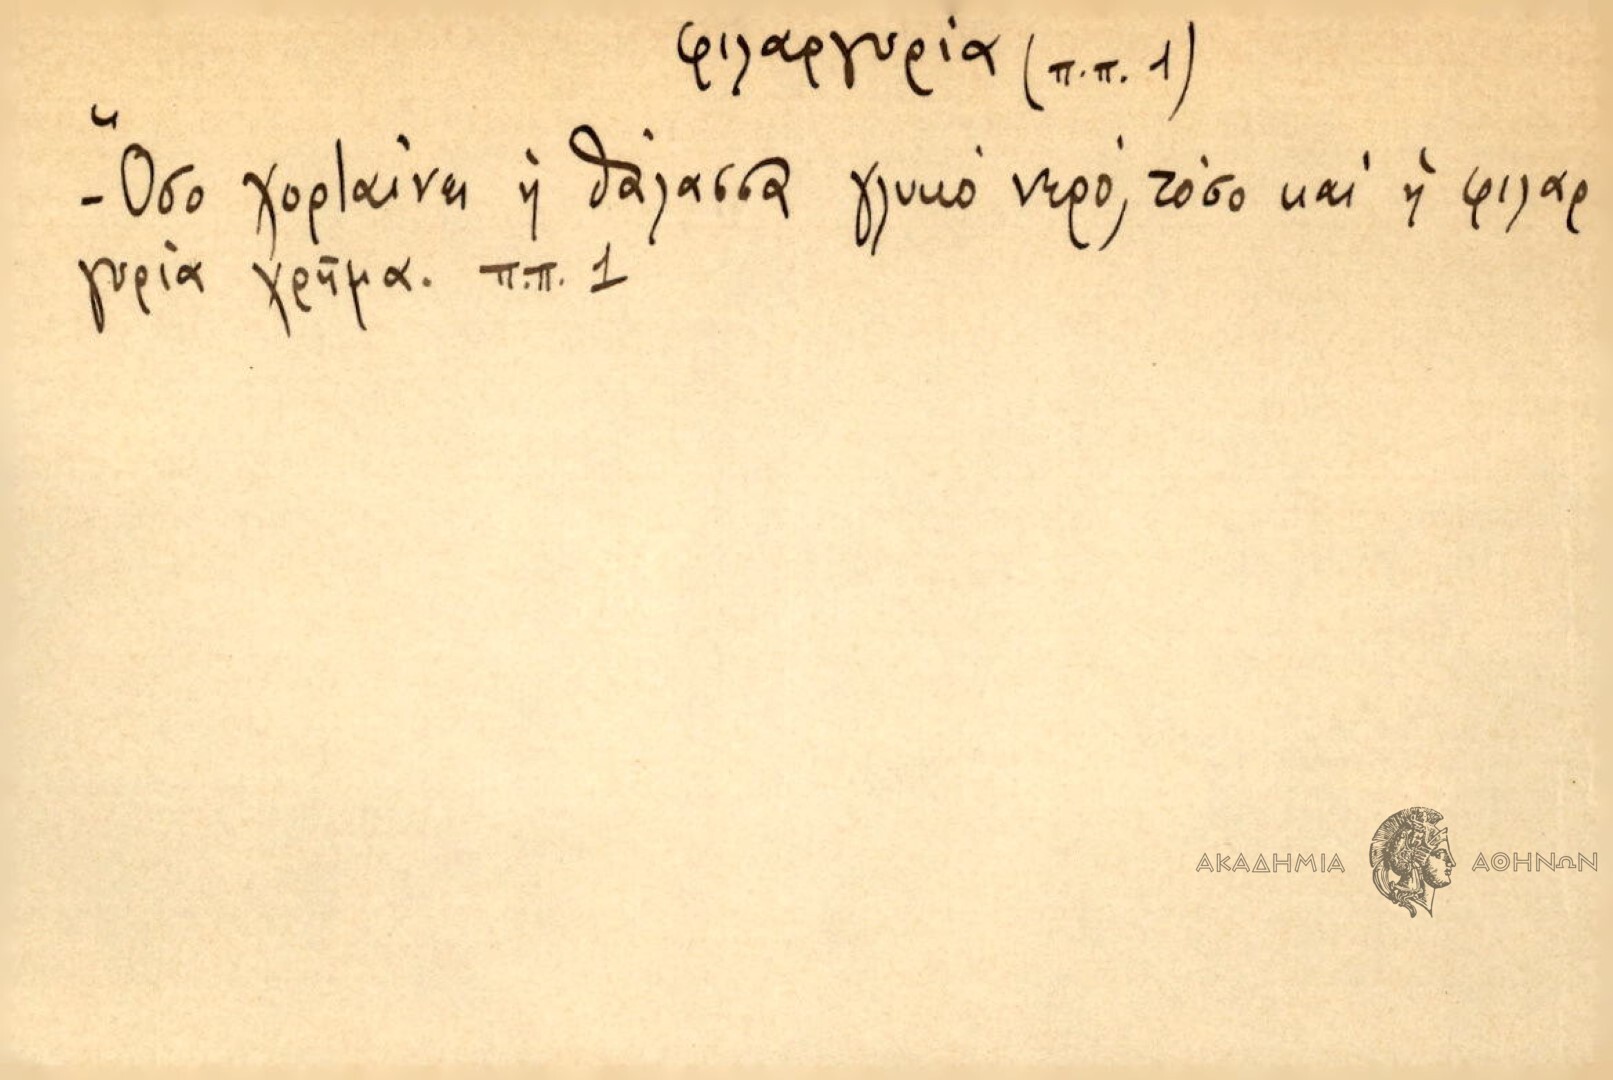 φιλαργυρία (π.π. 1)
- Ὅσο χορταίνει ἡ θάλασσα γλυκό νερό, τόσο καί ἡ φιλαρ
γυρία χρῆμα. π.π. 1
ΑΚΑΔΗΜΙΑ ΑΘΗΝΩΝ